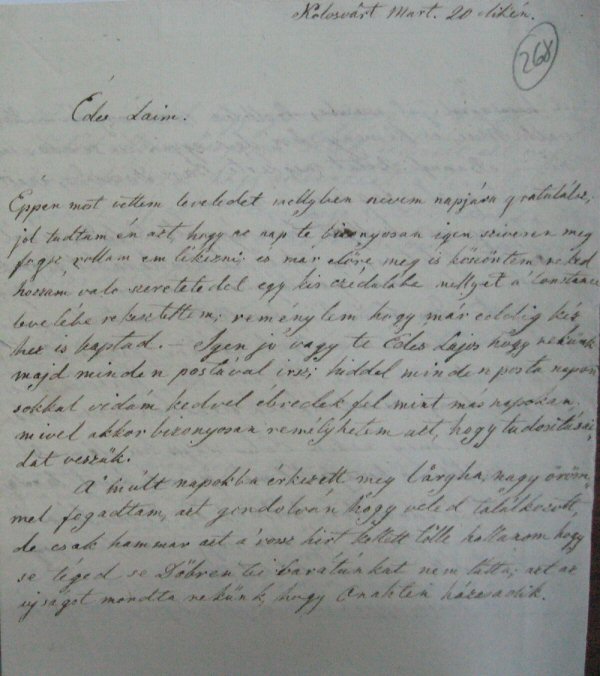 Kolosvárt Mart. 20 dikán.
268
Édes Laim.
Éppen most vettem leveledet mellyben nevem napjára gratulálsz,
jól tudtam én azt, hogy az nap te bizonyosan igen sziveren meg
fogsz rollam emlékezni; és már előre meg is köszöntem neked
hozzám való szeretetedet egy kis czedulába mellyet a Constance
levelébe rekesztettem; reménylem hogy már eddig kéz
hez is kaptad. – Igen jó vagy te Édes Lajos hogy nekünk
majd minden postával irsz; hiddel minden posta napon
sokkal vidám kedvel ébredek fel mint más napokan,
mivel akkor bizonyosan remélhetem azt, hogy tudositásai
dat veszük.
A' múlt napokba érkezett meg Lárgha, nagy öröm
mel fogadtam, azt gondolván hogy véled találkozott,
de csak hammar azt a rossz hírt kellett tölle hallanom hogy
se téged se Döbrentei barátunkat nem látta; azt az
ujságot mondta nekünk, hogy házasodik.